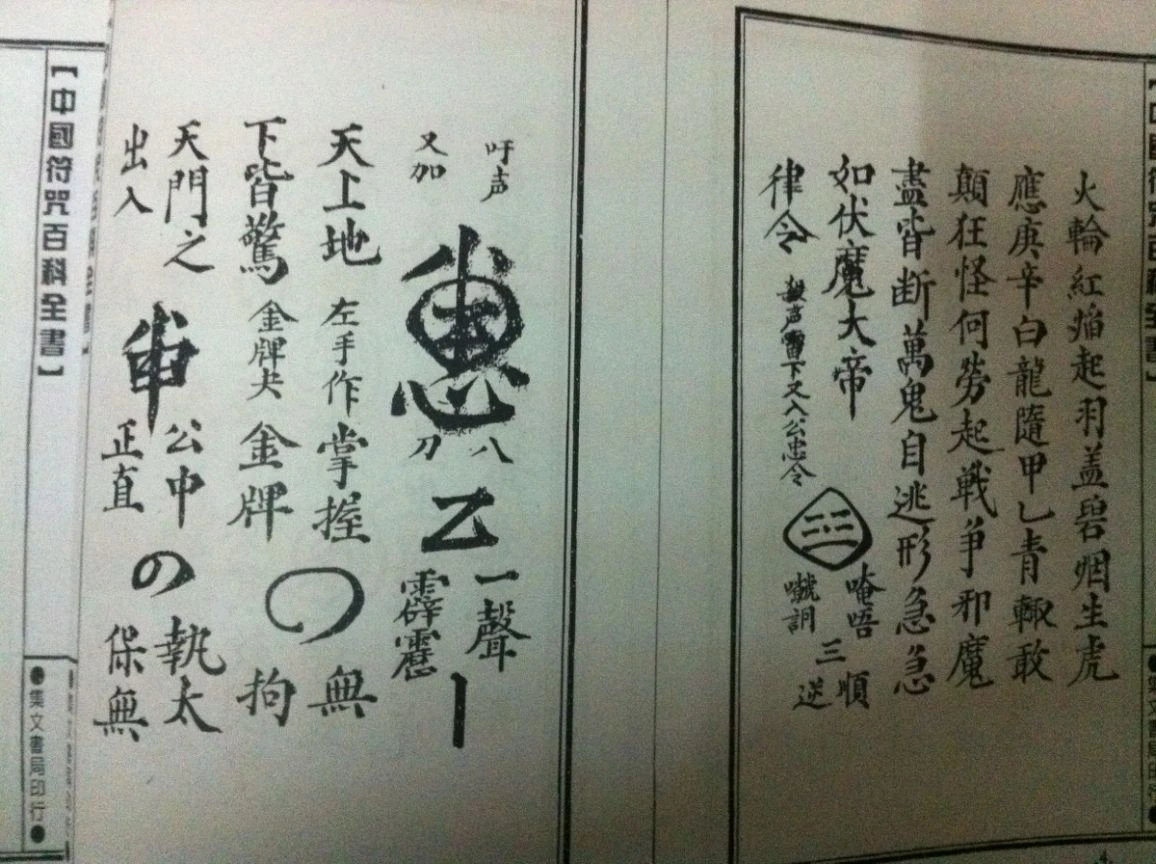 火輪紅焰起羽盖碧烟生虎
應庚辛白龍隨甲乙青輙敢
顛狂怪何勞起戰爭邪魔
盡皆断萬鬼自逃形急急
如伏魔大帝
律令
声雷下又入公忠令
唵唔
三順
逆
吁声
又加
八
刀
乙
一聲
霹靂
天上地
左手作掌握
無
下皆驚
金牌
金牌
拘
天門之
公中
執太
出入
正直
の
保無
【中國符咒百科全書】
●集文書局印行●